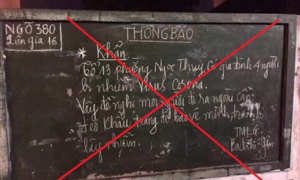 NGÕ 380
Liên gia 16
THÔNG BÁO
* Khẩn
Tổ 13 phường Ngọc Thụy có gia đình 4 người
bị nhiễm virus Corona.
Vậy đề nghị mọi người đi ra ngoài
đeo khẩu trang để bảo vệ mình, tránh
lây nhiễm.